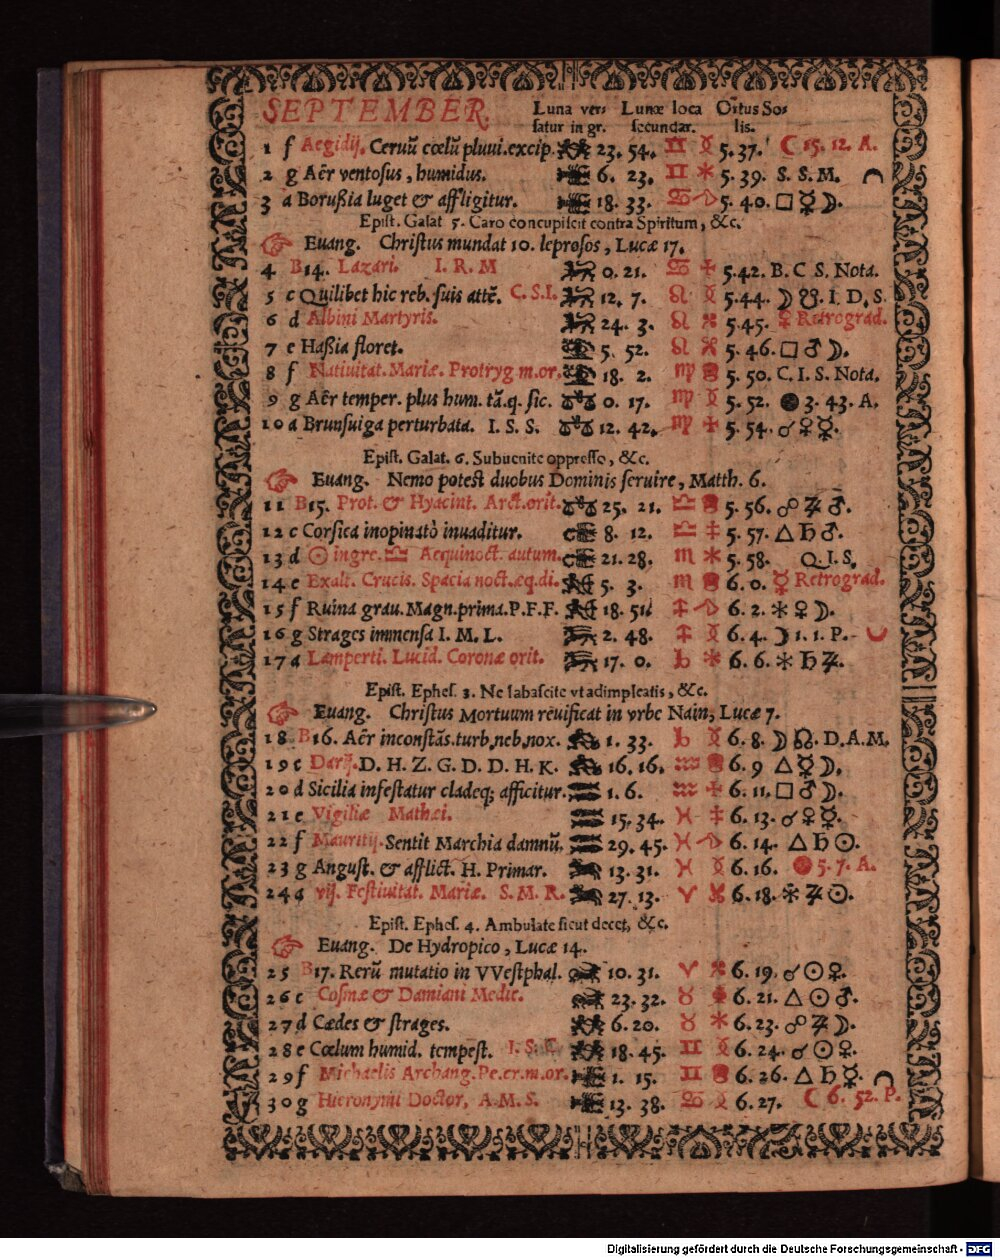 SEPTEMBER. Luna ver- Lunæ loca Ortus So-
satur in gr. secundar. lis.
1 f Aegidij. Cerũũ cœlũ pluui.excip. 23. 54. ♊ 5. 37. ☾ 15. 12. A.
2 g Aër ventosus, humidus. 6. 23. ♊ 5. 39. S. S. M.
3 a Borußia luget & affligitur. 18. 33. ♋ 5. 40. □ ☿ ☽.
Epist. Galat 5. Caro concupiscit contra Spiritum, &c.
☞ Euang. Christus mundat 10. leprosos, Lucæ 17.
4 B14. Lazari. I. R. M 0. 21. ♋ 5.42. B. C S. Nota.
5 c Quilibet hic reb. suis attẽ. C. S.I. 12. 7. ♌ 5.44. ☽ ☋. I. D. S.
6 d Albini Martyris. 24. 3. ♌ 5.45. ♀ Retrograd.
7 e Haßia floret. 5. 52. ♌ 5. 46. □ ♂ ☽.
8 f Natiuitat. Mariæ. Protryg m.or. 18. 2. ♍ 5. 50. C. I. S. Nota.
9 g Aër temper. plus hum. tã.q. sic. 0. 17. ♍ 5. 52. ● 3. 43. A.
10 a Brunsuiga perturbata. I. S. S. 12. 42. ♍ 5. 54. ☌ ♀ ☿.
Epist. Galat. 6. Subuenite oppresso, &c.
☞ Euang. Nemo potest duobus Dominis seruire, Matth. 6.
11 B15. Prot. & Hyacint. Arct.orit. 25. 21. ♎ 5. 56. ☍ ♃ ♂.
12 c Corsica inopinatò inuaditur. 8. 12. ♎ 5. 57. △ ♄ ♂.
13 d ☉ ingre. ♎ Aequinoct. autum. 21. 28. ♏ 5. 58. Q.I.S.
14 e Exalt. Crucis. Spacia noct.æq.di. 5. 3. ♏ 6. 0. ☿ Retrograd.
15 f Ruina grau. Magn.prima.P.F.F. 18. 51. ♐ 6. 2. ⚹ ♀ ☽.
16 g Strages immensa I. M. L. 2. 48. ♐ 6. 4. ☽ 1. 1. P.
17 a Lamperti. Lucid. Coronæ orit. 17. 0. ♑ 6. 6. ⚹ ♄ ♃.
Epist. Ephes. 3. Ne labascite vt adimpleatis, &c.
☞ Euang. Christus Mortuum reuificat in vrbe Nain, Lucæ 7.
18 B16. Aër inconstãs.turb,neb,nox. 1. 33. ♑ 6. 8. ☽ ☊. D. A.M.
19 c Darij. D. H. Z. G. D. D. H. K. 16. 16. ♒ 6. 9 △ ☿ ☽.
20 d Sicilia infestatur cladeq; afficitur. 1. 6. ♒ 6. 11. □ ♂ ☽.
21 e Vigiliæ Mathæi. 15. 34. ♓ 6. 13. ☌ ♀ ☿.
22 f Mauritij. Sentit Marchia damnũ. 29. 45. ♓ 6. 14. △ ♄ ☉.
23 g Angust. & afflict. H. Primar. 13. 31. ♓ 6. 16. ● 5. 7. A.
24 a vij. Festiuitat. Mariæ. S. M. R. 27. 13. ♈ 6. 18. ⚹ ♃ ☉.
Epist. Ephes. 4. Ambulate sicut decet, &c.
☞ Euang. De Hydropico, Lucæ 14.
25 B17. Rerũ mutatio in VVestphal. 10. 31. ♈ 6. 19. ☌ ☉ ♀.
26 c Cosmæ & Damiani Medic. 23. 32. ♉ 6. 21. △ ☉ ♂.
27 d Cædes & strages. 6. 20. ♉ 6. 23. ☍ ♃ ☽.
28 e Cœlum humid. tempest. I. S. C. 18. 45. ♊ 6. 24. ☌ ☉ ♀.
29 f Michaelis Archang.Pe.er.m.or. 1. 15. ♊ 6. 26. △ ♄ ☿.
30 g Hieronymi Doctor, A. M. S. 13. 38. ♋ 6. 27. ☾ 6. 52. P.
Digitalisierung gefördert durch die Deutsche Forschungsgemeinschaft - DFG